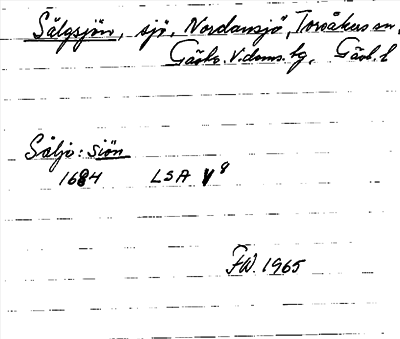 Sälgsjön, sjö, Nordansjö, Torsåkers sn,
Gästr. V. doms. tg, Gävl. l
Säljo: siön
1684 LSA V 8
FW. 1965